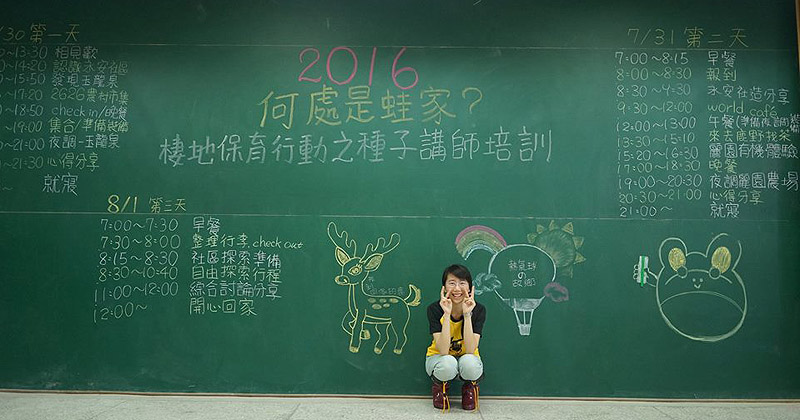 /30 第一天
~13:30 相見歡
~14:20 認識永安社區
~15:50 發現玉龍泉
~17:20 2626農村市集
~18:50 check in/晚餐
~19:00 集合/準備裝備
~21:00 夜調-玉龍泉
~21:30 心得分享
~ 就寢
2016
何處是蛙家?
棲地保育行動之種子講師培訓
7/31 第二天
7:00~8:15 早餐
8:00~8:30 報到
8:30~9:30 永安社造分享
9:30~12:00 world cafe
12:00~13:00 午餐(準備夜調
13:10~15:10 來去鹿野找茶
15:20~16:30 麗園有機體驗
17:00~18:00 晚餐
19:00~20:30 夜調麗園農場
20:30~21:00 心得分享
21:00~ 就寢
8/1 第三天
7:00~7:30 早餐
7:30~8:00 整理行李.check out
8:15~8:30 社區探索準備
8:30~10:40 自由探索行程
11:00~12:00 綜合討論分享
12:00~ 開心回家
熱氣球
の
故鄉